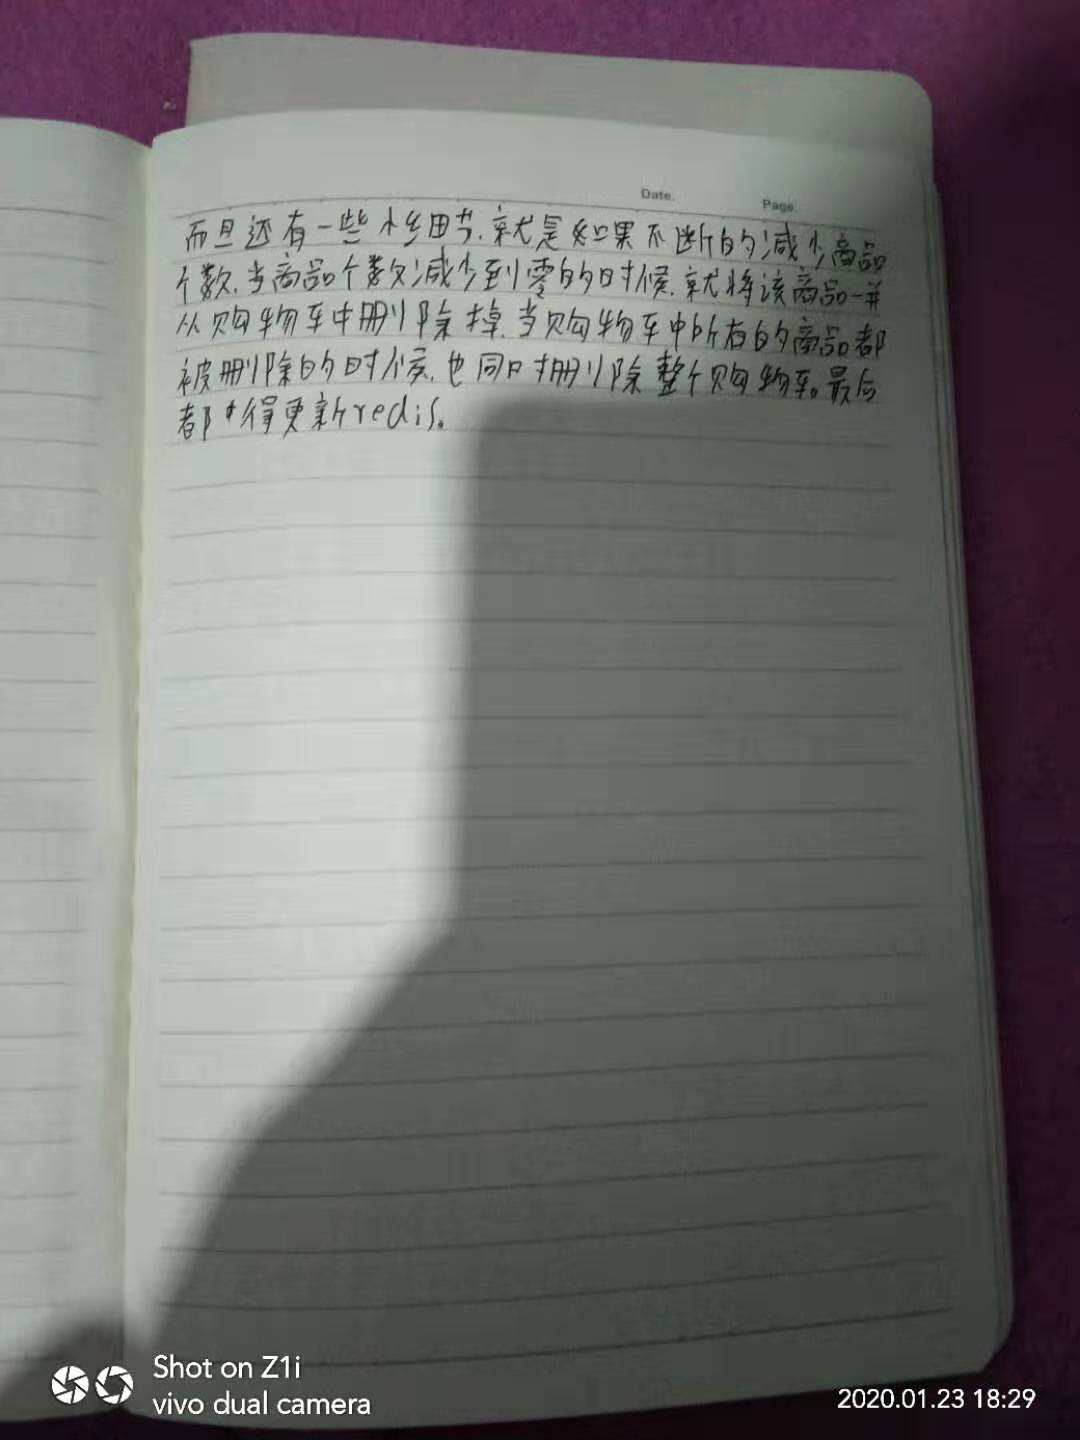 Date.
Page.
而且还有一些小细节.就是如果不断的减少商品
个数.当商品个数减少到零的时候.就将该商品一并
从购物车中删除掉.当购物车中所有的商品都
被删除的时候.也同时删除整个购物车。最后
都得更新redis。
Shot on Z1i
vivo dual camera
2020.01.23 18:29